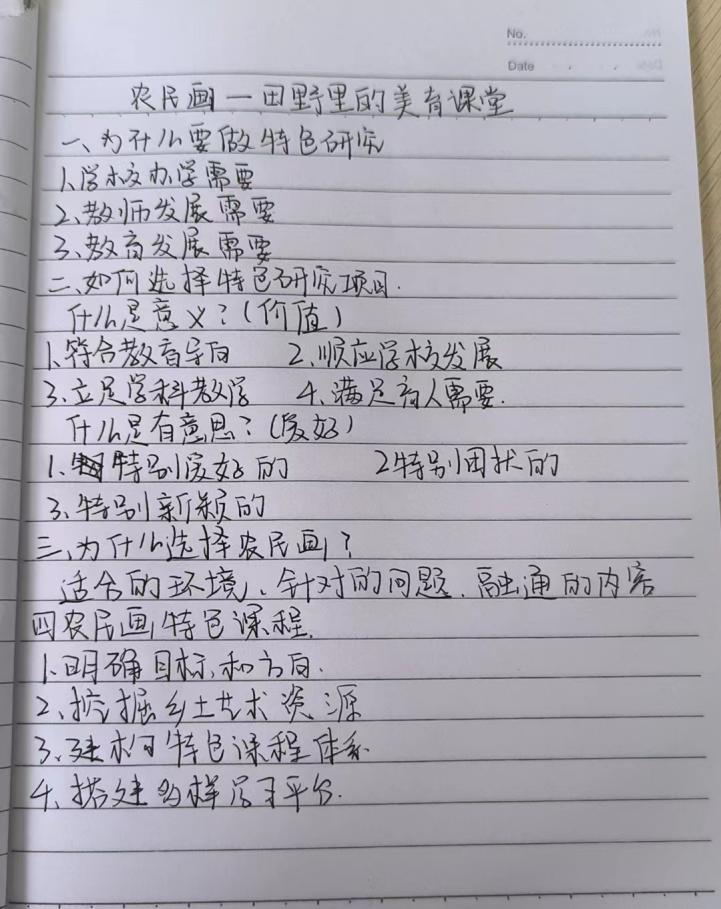 No.
Date
农民画—田野里的美育课堂
一、为什么要做特色研究
1.学校办学需要
2、教师发展需要
3、教育发展需要
二、如何选择特色研究项目.
什么是意义?(价值)
1.符合教育导向 2、顺应学校发展
3、立足学科教学 4、满足育人需要.
什么是有意思?(爱好)
1、特别爱好的 2特别困扰的
3、特别新颖的
三、为什么选择农民画?
适合的环境、针对的问题、融通的内容
四农民画特色课程.
1.明确目标,和方向.
2、挖掘乡土艺术资源
3、建构特色课程体系
4、搭建多样学习平台.